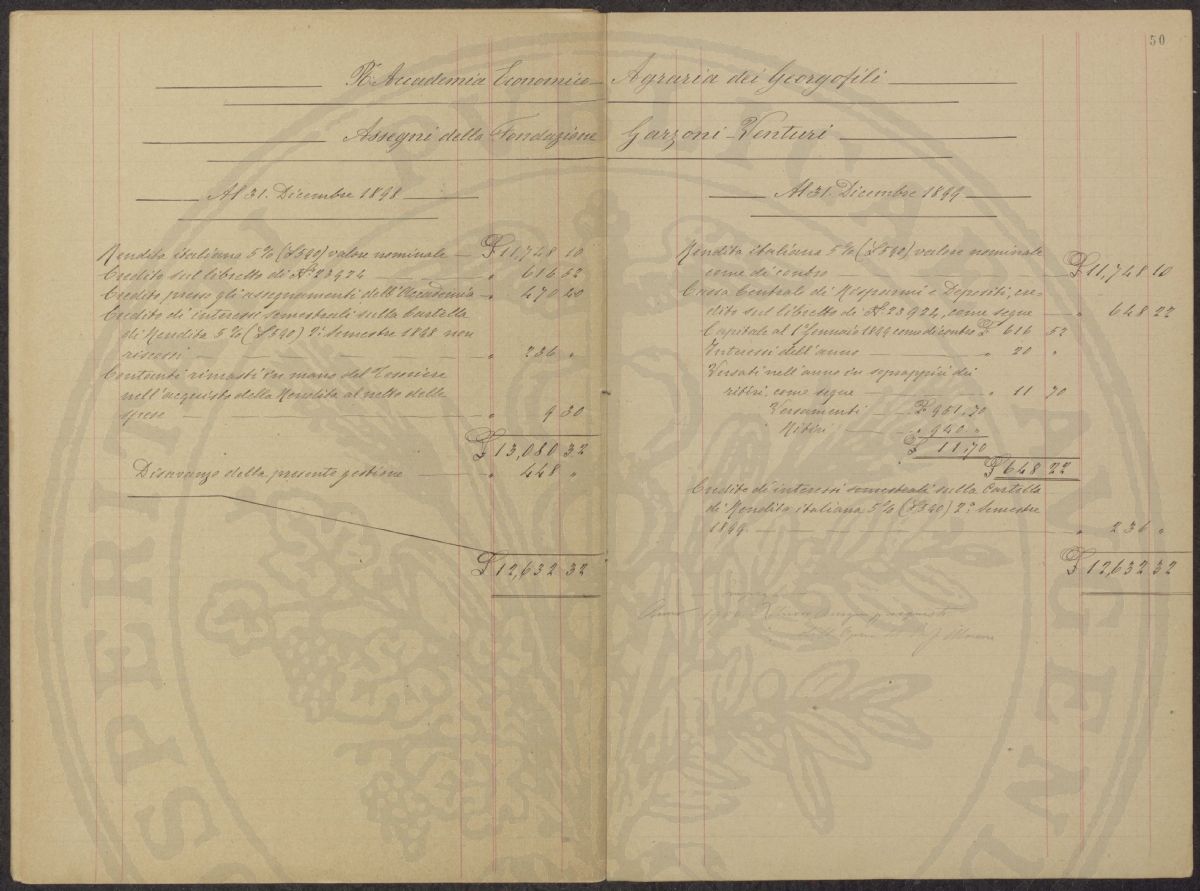 50
R. Accademia Economico-Agraria dei Georgofili
Assegni della Fondazione Garzoni-Venturi
Al 31. Dicembre 1898
Rendita italiana 5% (£590) valore nominale — £ 11,748 10
Credito sul libretto di N° 23924 — " 616 52
Credito presso gli assegnamenti dell'Accademia — " 470 40
Credito di interessi semestrali sulla Cartella
di Rendita 5% (£590) 2° Semestre 1898 non
riscossi — " 236 "
Contanti rimasti in mano del Tesoriere
nell'acquisto della Rendita al netto delle
spese — " 9 30
£ 13,080 32
Disavanzo della presente gestione — " 448 "
£ 12,632 32
Al 31. Dicembre 1899
Rendita italiana 5% (£590) valore nominale
come di contro — £ 11,748 10
Cassa Centrale di Risparmi e Depositi, cre-
dito sul libretto di N° 23924, come segue — " 648 22
Capitale al 1° Gennaio 1899 come di contro £ 616 52
Interessi dell'anno — " 20 "
Versati nell'anno in soprappiù dei
ritiri, come segue — " 11 70
Versamenti — £ 951,70
Ritiri — " 940 "
£ 11,70
£ 648 22
Credito di interessi semestrali sulla Cartella
di Rendita italiana 5% (£590) 2° Semestre
1899 — " 236 "
£ 12,632 32
SPERITATI PUBLICAE AUGENDAE